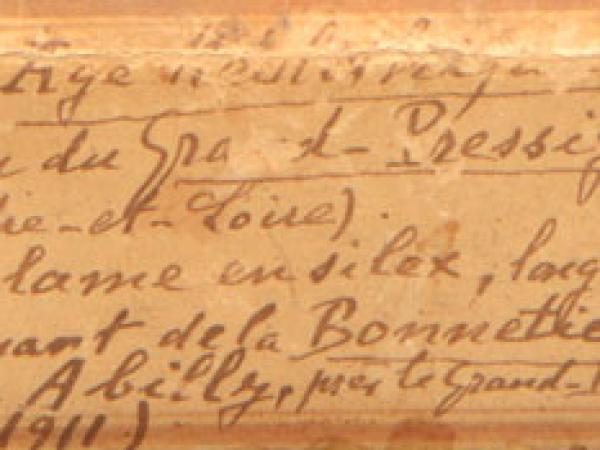 Age
du Grand-Pressig
ie-et-Loire).
lame en silex, long
nant de la Bonnetie
Abilly, près le Grand-
1911.)